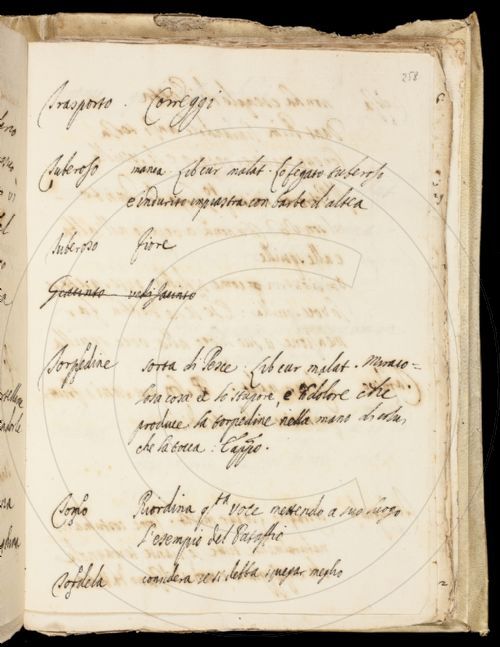 258
Trasporto. Correggi
Tuberoso manca. Lib cur malat. Lo fegato tuberoso
e indurito impiastra con barbe d'altea
Tuberoso fiore
Giacinto vedi Jacinto
Torpedine sorta di Pesce. Lib cur malat. Miraco=
losa cosa è lo stupore, e 'l dolore che
produce la torpedine nella mano di colui,
che la tocca.
Riordina q.ta voce mettendo a suo luogo
l'esempio del Pataffio
considera se si debba spiegar meglio